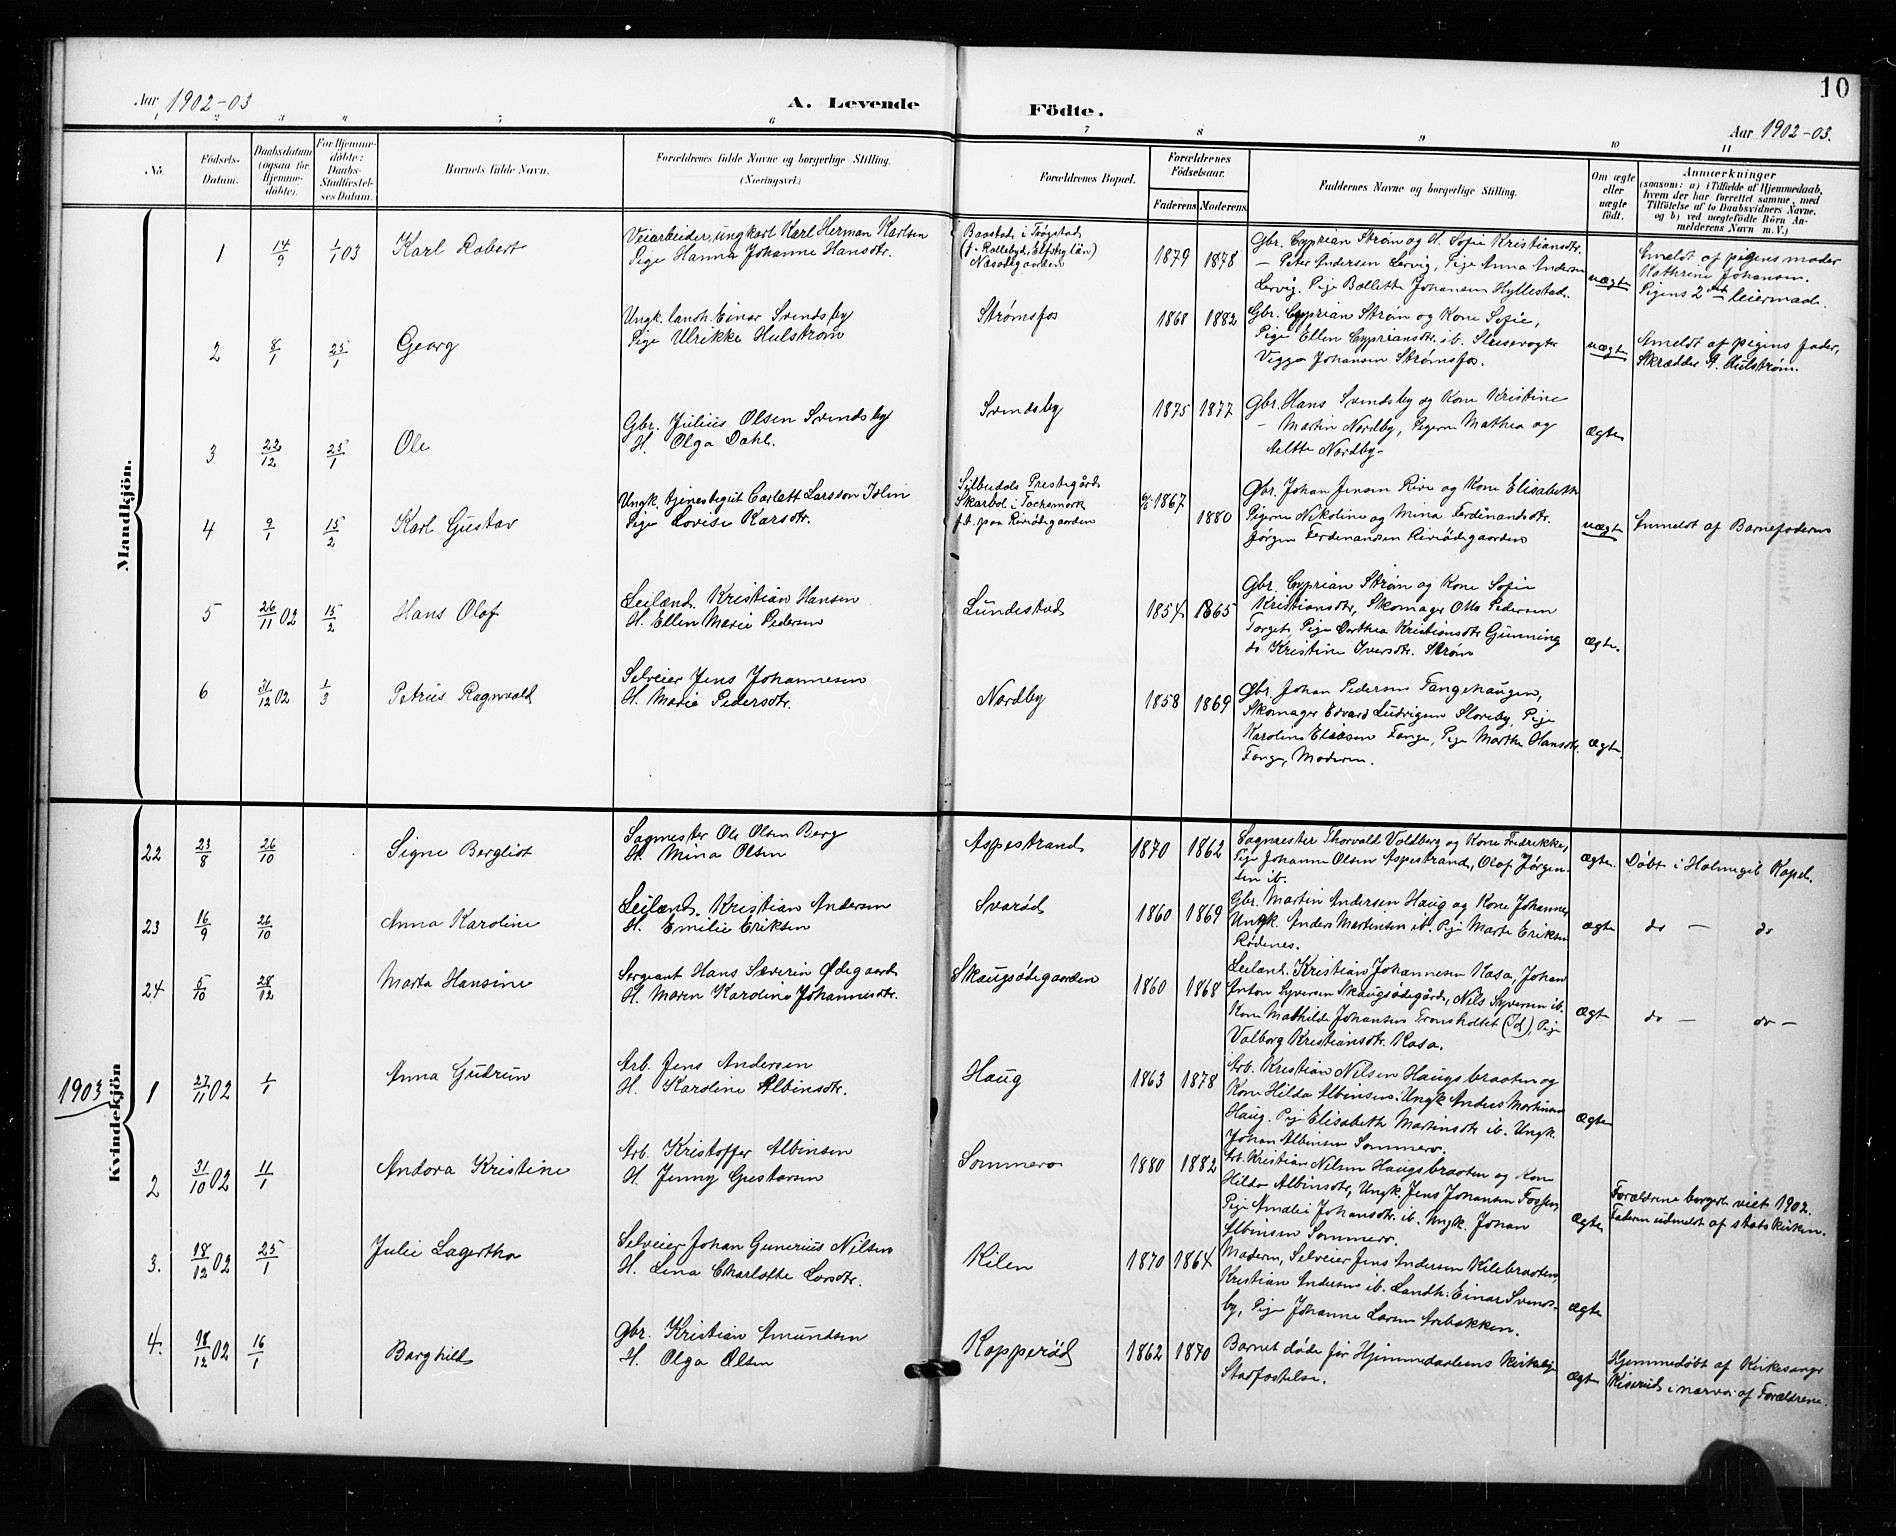 10
Aar 1902-03
A. Levende Födte.
Aar 1902-03.
1 2 3 4 5 6 7 8 9 10 11
No.
Födsels-Datum.
Daabsdatum (ogsaa for Hjemmedöbte).
For Hjemmedöbte: Daabs-Stadfæstelses Datum.
Barnets fulde Navn.
Forældrenes fulde Navne og borgerlige Stilling.
(Næringsvei.)
Forældrenes Bopæl.
Forældrenes Födselsaar.
Faderens Moderens
Faddernes Navne og borgerlige Stilling.
Om ægte eller uægte födt.
Anmærkninger
(saasom: a) i Tilfælde af Hjemmedaab, hvem der har forrettet samme, med Tilföielse af to Daabsvidners Navne, og b) ved uægtefödte Börn Anmelderens Navn m. V.)
Mandkjön.
1 14/9 1/1 03 Karl Robert
Veiarbeider, ungkarl Karl Herman Karlsen
Pige Hanna Johanne Hansdtr.
Baastad i Trøgstad
1879 1878
Gbr. Cyprian Strøm og H. Sofie Kristiansdtr.
– Peter Andersen Lervig, Pige Anna Andersen
Lervig. Pige Bollette Johansen Hyllestad.
uægte
Anmeldt af pigens moder
Kathrine Johansen.
Pigens 2det leiermaal.
2 8/1 25/1 Georg
Ungk. landh. Einar Svendsby
Pige Ulrikke Hulstrøm
Strømsfos
1868 1882
Gbr. Cyprian Strøm og Kone Sofie,
Pige Ellen Cypriansdtr. ib. Slusevogter
Viggo Johansen Strømsfos.
uægte
Anmeldt af pigens fader,
Skrædder A. Hulstrøm.
3 22/12 25/1 Ole
Gbr. Julius Olsen Svendsby
H. Olga Dahl.
Svendsby
1875 1877
Gbr. Hans Svendsby og Kone Kristine
– Martin Nordby, Pigerne Mathea og
Nordby–
ægte
4 9/1 15/2 Karl Gustav
Ungk. tjenestegut Carlett Larsson Idlin
Pige Lovise Larsdtr.
Silbodals Prestegård
Skarbol i Tockemark
f.t. paa Reviødegaarden
1867 1880
Gbr. Johan Jensen Rive og Kone Elisabeth
Pigerne Nikoline og Mina Ferdinandsdtr.
Jørgen Ferdinandsen Reviødegaarden
uægte
Anmeldt af Barnefaderen
5 26/11 02 15/2 Hans Olaf
Leilænd. Kristian Hansen
H. Ellen Marie Pedersen
Lundestad
1854 1865
Gbr. Cyprian Strøm og Kone Sofie
Kristiansdtr, Skomager Otto Pedersen
Torget, Pige Dorthea Kristiansdtr Gunning
do Kristine Iversdtr. Strøm
ægte.
6 31/12 02 1/3 Petrus Ragnvald
Selveier Jens Johannesen
H. Marie Pedersdtr.
Nordby
1858 1869
Gbr. Johan Pedersen Tangehaugen,
Skomager Edvard Ludvigsen Sloreby, Pige
Karoline Eliasen Tange, Pige Marthe Hansdtr.
Tange, Moderen.
ægte
Kvindekjön
22 23/8 26/10 Signe Bergliot
Sagmester Ole Olsen Berg
H. Mina Olsen
Aspestrand
1870 1862
Sagmester Thorvald Voldberg og Kone Fredrikke,
Pige Johanne Olsen Aspestrand, Olaf Jørgen-
sen ib.
ægte.
Døbt i Holmegil Kapel.
23 16/9 26/10 Anna Karoline
Leilænd. Kristian Andersen
H. Emilie Eriksen
Svarød
1860 1869
Gbr. Martin Andersen Haug og Kone Johanne,
Ungk. Anders Martinsen ib. Pige Marte Eriksen
Rødenes.
ægte
do – do
24 5/10 28/12 Marta Hansine
Sergeant Hans Severin Ødegaard
H. Maren Karoline Johannesdtr.
Skaugsødegaarden
1860 1868
Leilænd. Kristian Johannesen Kasa, Johan
Anton Syversen Skaugsødegård, Nils Syversen ib.
Kone Mathilde Johansen Tronsholtet (Id), Pige
Valborg Kristiansdtr. Kasa.
ægt
do – do –
1903
1 27/11 02 1/1 Anna Gudrun
Arb. Jens Andersen
H. Karoline Albinsdtr.
Haug
1863 1878
Arb. Kristian Nilsen Haugsbraaten og
Kone Hilda Albinsen, Ungk. Anders Martinsen
Haug. Pige Elisabeth Martinsdtr ib. Ungk.
Johan Albinsen Sommero.
ægte
2 31/10 02 11/1 Andora Kristine
Arb. Kristoffer Albinsen
H. Jenny Gustavsen
Sommero
1880 1882
Arb. Kristian Nilsen Haugsbraaten og Kone
Hilda Albinsdtr, Ungk. Jens Johansen Fossen,
Pige Amalie Johansdtr. ib. Ungk. Johan
Albinsen Sommero.
ægte
Forældrene borgerl. viet 1902.
Faderen udmeldt af statskirken.
3. 18/12 02 25/1 Julie Lagertha
Selveier Johan Gunerius Nilsen
H. Lina Charlotte Larsdtr.
Kilen
1870 1864
Moderen, Selveier Jens Andersen Kilebraaten,
Kristian Andersen ib. Landh. Einar Svends-
by, Pige Johanne Larsen Arebakken.
ægte
4. 18/12 02 16/1 Borghild
Gbr. Kristian Amundsen
H. Olga Olsen
Kopperød
1862 1870
Barnet døde før Hjemmedaabens kirkelige
Stadfæstelse.
ægte
Hjemmedøbt af Kirkesanger
Kiserud i nærvær af Forældrene.